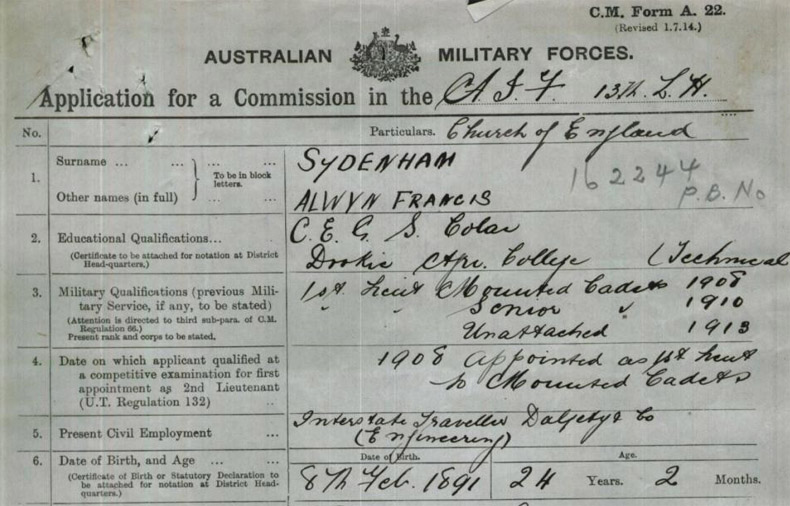 C.M. Form A. 22.
(Revised 1.7.14.)
AUSTRALIAN MILITARY FORCES.
Application for a Commission in the A.I.F. 13th L.H.
No. Particulars. Church of England
1. Surname ... ... ... To be in block letters. SYDENHAM
162244
P.B. No
Other names (in full) ... ... ALWYN FRANCIS
2. Educational Qualifications... ... C.E.G.S. Colac
(Certificate to be attached for notation at District Head-quarters.) Dookie Agr. College (Technical
3. Military Qualifications (previous Military Service, if any, to be stated) 1st Lieut Mounted Cadets 1908
" " Senior " 1910
(Attention is directed to third sub-para. of C.M. Regulation 66.)
Present rank and corps to be stated. Unattached 1913
4. Date on which applicant qualified at a competitive examination for first appointment as 2nd Lieutenant (U.T. Regulation 132) .. 1908 appointed as 1st Lieut
to Mounted Cadets
5. Present Civil Employment ... Interstate Traveller Dalgety & Co
(Engineering)
6. Date of Birth, and Age ... ... Date of Birth. Age.
(Certificate of Birth or Statutory Declaration to be attached for notation at District Head-quarters.) 8th Feb. 1891 24 Years. 2 Months.